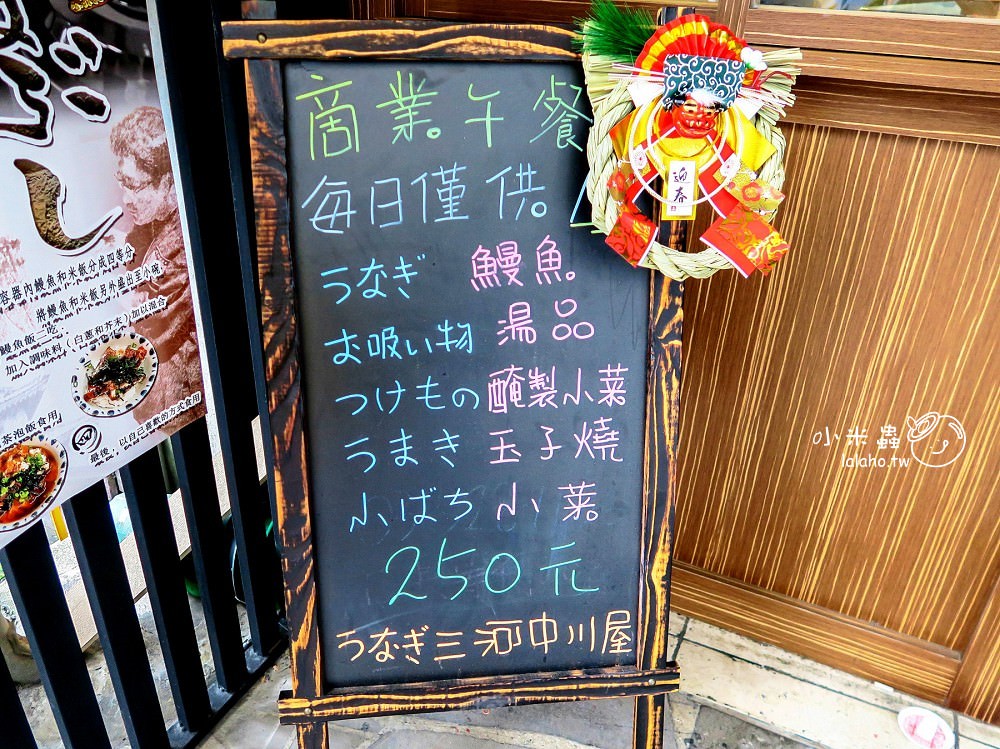 商業。午餐
每日僅供。
うなぎ 鰻魚。
お吸い物 湯品
つけもの 醃製小菜
うまき 玉子燒
小ばち 小菜。
250元
うなぎ三河中川屋
迎春
容器內鰻魚和米飯分成四等分
將鰻魚和米飯另外盛出至小碗。
鰻魚飯二吃：
加入調味料（白蔥和芥末）加以混合
茶泡飯食用
最後，以自己喜歡的方式食用
し
小米蟲
lalaho.tw